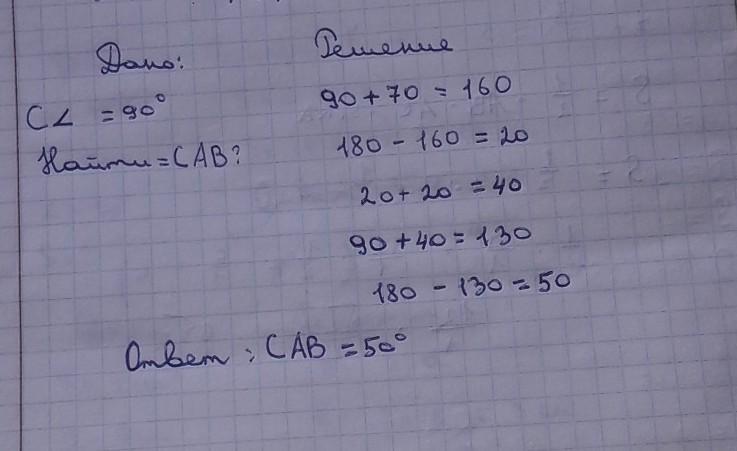 Дано:
C∠ = 90°
Найти = CAB?
Решение
90 + 70 = 160
180 - 160 = 20
20 + 20 = 40
90 + 40 = 130
180 - 130 = 50
Ответ : CAB = 50°